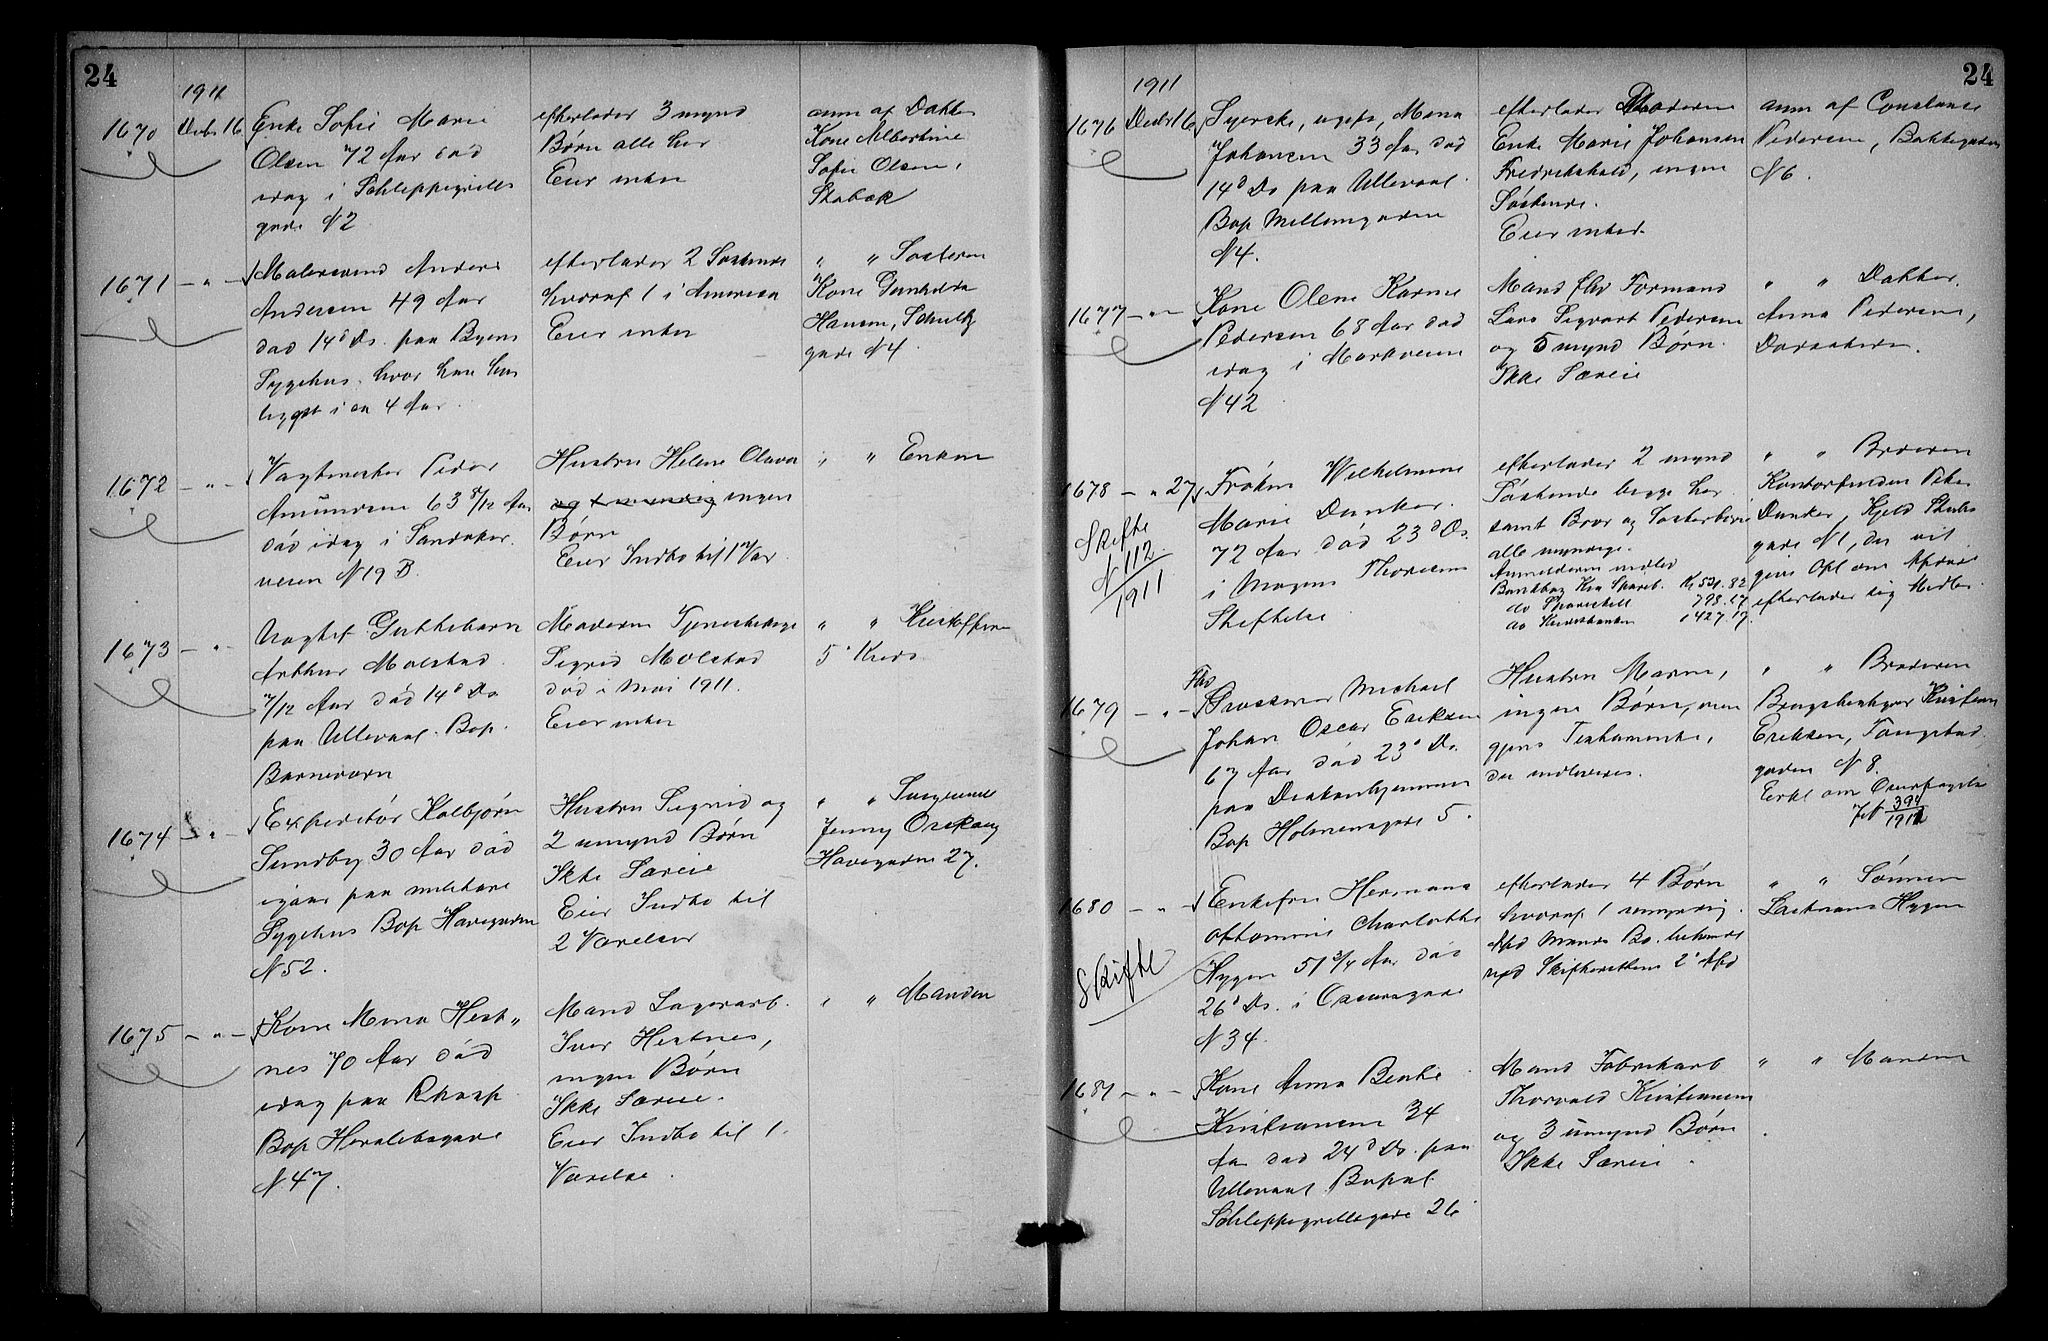 24
1911
1670 Decbr 16 Enke Sofie Marie
Olsen 72 Aar død
idag i Schleppegrells
gade N 2
efterlader 3 mynd
Børn alle her
Eier intet
anm af Datter
Kone Albertine
Sofie Olsen,
Stabæk
1671 - " - Malersvend Anders
Andersen 49 Aar
død 14d Ds. paa Byens
Sygehus, hvor han har
ligget i ca 4 Aar.
efterlader 2 Søskende
hvoraf 1 i Amerika
Eier intet
" " Søsteren
Kone Gunhilda
Hansen, Schultz
gade N 4.
1672 - " - Vagtmester Peder
Amundsen 63 8/12 Aar
død idag i Sandaker
veien N 19 B.
Hustru Helene Olava
og 1 myndig ingen
Børn
Eier Indbo til 1 Vær.
" " Enken
1673 - " - Uægtef. Guttebarn
Arthur Molstad
7/12 Aar død 14d Ds
paa Ullevaal. Bop.
Barneværn
Moderen Tjenestepige
Sigrid Molstad
død i Mai 1911.
Eier intet
" "
5' Kreds
1674 - " - Expeditør Kolbjørn
Sundby 30 Aar død
igaar paa militære
Sygehus Bop Havegaden
N 52.
Hustru Sigrid og
2 umynd Børn
Ikke Særeie
Eier Indbo til
2 Værelser
" " Svigerinde
Jenny
Havegaden 27.
1675 - " - Kone Mina Hest"
nes 70 Aar død
idag paa Rhosp.
Bop Heralebsgade
N 47.
Mand Lagerarb.
Iver Hestnes,
ingen Børn
Ikke Særeie.
Eier Indbo til 1
Værelse.
" " Manden
24
1911
1676 Decbr 16 Syerske, ugift, Mina
Johansen 33 Aar død
14d Ds paa Ullevaal.
Bop Mellemgaden
N 4.
efterlader Moderen
Enke Marie Johansen
Fredrikshald, ingen
Søskende.
Eier intet.
anm af Constance
Pedersen, Bakkegaden
N 6.
1677 - " - Kone Olene Karine
Pedersen 68 Aar død
idag i Markveien
N 42
Mand fhv Formand
Lars Sigvart Pedersen
og 5 mynd Børn.
Ikke Særeie
" " Datter
Anna Pedersen,
1678 - " 27 Frøken Wilhelmine
Marie Dunker.
72 Aar død 23d Ds.
i Mogens Thoresens
Stiftelse
Skifte
N 112
1911
efterlader 2 mynd
Søskende begge her
samt Bror og Søsterbørn
alle myndige.
Anmelderen indlev
Bankbog Kra Spareb. Kr 531.82
do Spareskill 798.17
do " 427.17
" " Broderen
Kontorfuldm Peter
Dunker, Kjeld Stubs
gade N 1, der vil
give Opl om Afdøde
efterlader sig Midler
1679 - " - Fhv
Grosserer Michael
Johan Oscar Eriksen
67 Aar død 23d Ds.
paa Diakonhjemmet
Bop Holmensgade 5.
Hustru Maren,
ingen Børn, men
gjens Testamente,
der indleveres.
" " Broderen
Brugsbestyrer Kristian
Eriksen, Fougstad
gaden N 8.
Erkl om Overtagelse
JN 394
1911
1680 - " - Enkefru Hermana
Charlotte
Hygen 51 3/4 Aar død
26d Ds. i Oscarsgade
N 34.
Skifte
efterlader 4 Børn
hvoraf 1 umyndig.
Afd Mands Bo behandl
ved Skifterettens 2' Afd
" " Sønnen
Løitnant Hygen
1681 - " - Kone Anna Bentie
Kristiansen 34
Aar død 24d Ds. paa
Ullevaal Bopæl
Schleppegrellsgade 26
Mand Fabrikarb
Thorvald Kristiansen
og 3 umynd Børn.
Ikke Særeie.
" " Manden